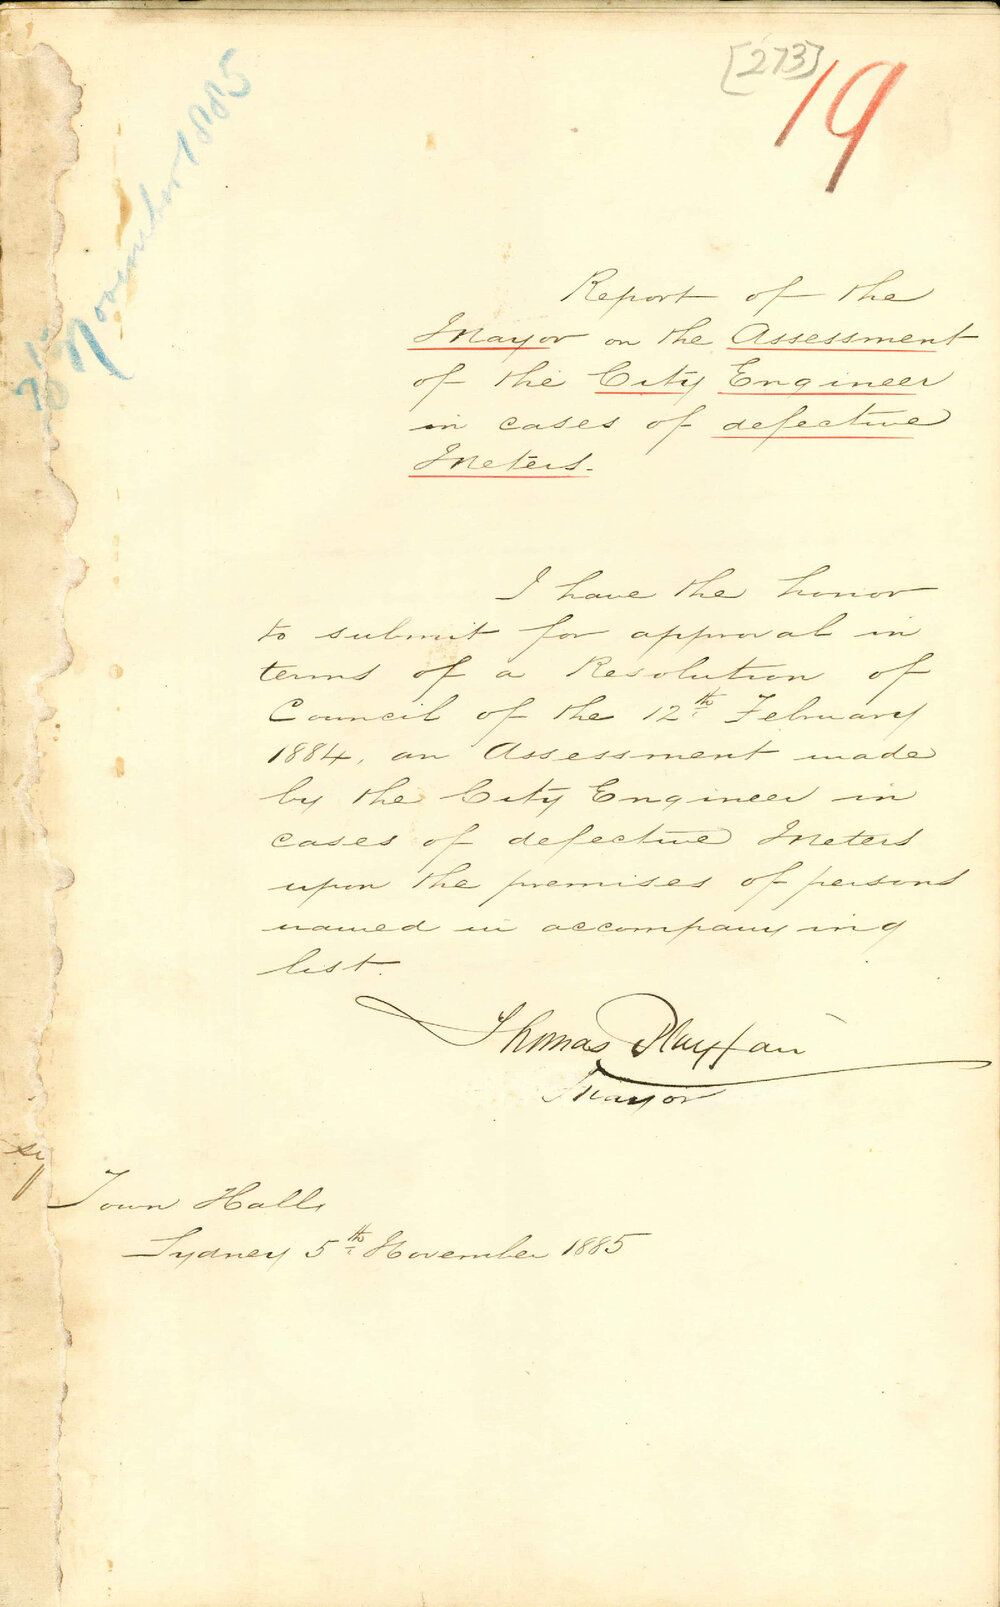 [273]
19
November 1885
Report of the
Mayor on the Assessment
of the City Engineer
in cases of defective
Meters.
I have the honor
to submit for approval in
terms of a Resolution of
Council of the 12th February
1884, an Assessment made
by the City Engineer in
cases of defective Meters
upon the premises of persons
named in accompanying
list.
Thomas Playfair
Mayor
Town Hall,
Sydney 5th November 1885